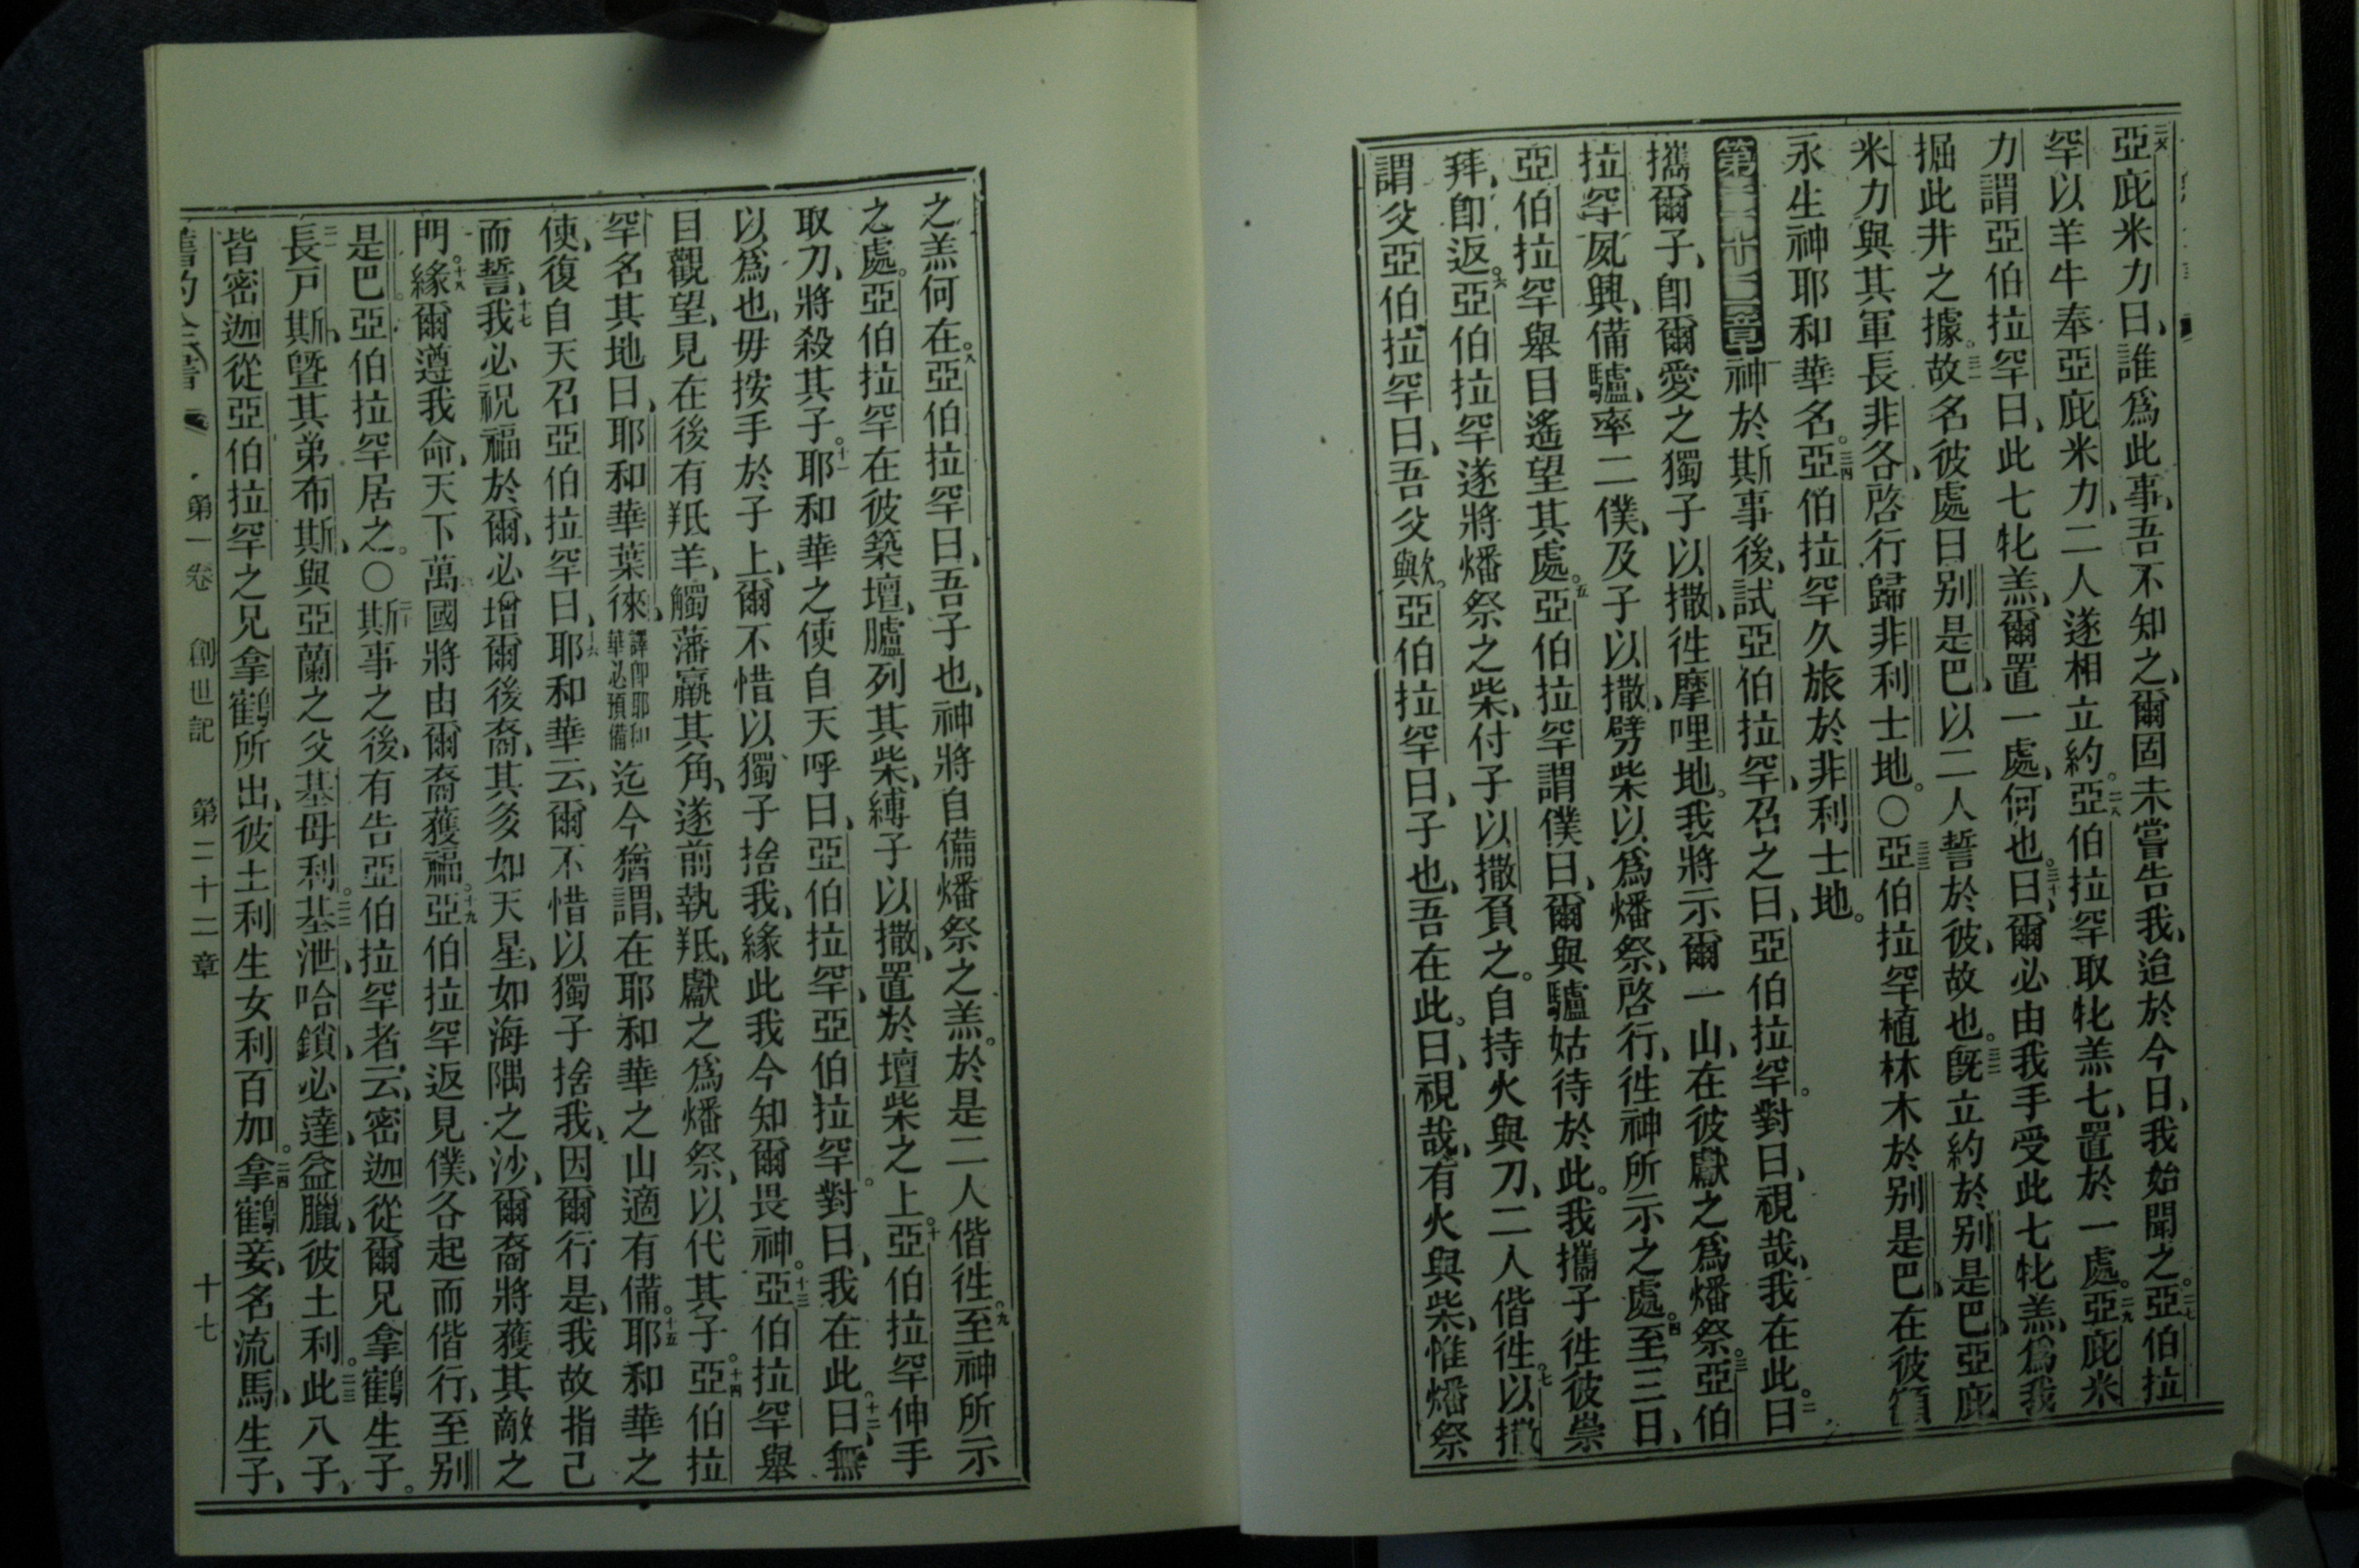 亞庇米力曰、誰爲此事、吾不知之、爾固未嘗告我、迨於今日、我始聞之。二七亞伯拉
罕以羊牛奉亞庇米力、二人遂相立約。二八亞伯拉罕取牝羔七、置於一處。二九亞庇米
力謂亞伯拉罕曰、此七牝羔、爾置一處、何也。三十曰、爾必由我手受此七牝羔、爲我
掘此井之據。三一故名彼處曰别是巴、以二人誓於彼、故也。三二旣立約於别是巴、亞庇
米力與其軍長非各、啓行歸非利士地。〇三三亞伯拉罕植林木於别是巴、在彼籲
永生神耶和華名。三四亞伯拉罕久旅於非利士地。
第二十二章 一神於斯事後、試亞伯拉罕、召之曰、亞伯拉罕。對曰、視哉、我在此。二曰
攜爾子、卽爾愛之獨子以撒、徃摩哩地。我將示爾一山、在彼獻之爲燔祭。三亞伯
拉罕夙興、備驢、率二僕、及子以撒、劈柴以爲燔祭、啓行、徃神所示之處。四至三日、
亞伯拉罕舉目遙望其處。五亞伯拉罕謂僕曰、爾與驢姑待於此。我攜子徃彼崇
拜、卽返。六亞伯拉罕遂將燔祭之柴、付子以撒負之。自持火與刀、二人偕徃。七以撒
謂父亞伯拉罕曰、吾父歟。亞伯拉罕曰、子也、吾在此。曰、視哉、有火與柴、惟燔祭
之羔何在。八亞伯拉罕曰、吾子也、神將自備燔祭之羔。於是二人偕徃。九至神所示
之處。亞伯拉罕在彼築壇、臚列其柴、縛子以撒、置於壇柴之上。十亞伯拉罕伸手
取刀、將殺其子。十一耶和華之使自天呼曰、亞伯拉罕、亞伯拉罕。對曰、我在此。十二曰、無
以爲也、毋按手於子上、爾不惜以獨子捨我、緣此我今知爾畏神。十三亞伯拉罕舉
目觀望、見在後有羝羊、觸藩羸其角、遂前執羝、獻之爲燔祭、以代其子。十四亞伯拉
罕名其地曰、耶和華葉徠、譯卽耶和華必預備迄今猶謂、在耶和華之山適有備。十五耶和華之
使、復自天召亞伯拉罕曰、十六耶和華云、爾不惜以獨子捨我、因爾行是、我故指己
而誓、十七我必祝福於爾、必增爾後裔、其多如天星、如海隅之沙、爾裔將獲其敵之
門。十八緣爾遵我命、天下萬國將由爾裔獲福。十九亞伯拉罕返見僕、各起而偕行、至别
是巴。亞伯拉罕居之。〇二十斯事之後、有告亞伯拉罕者、云、密迦從爾兄拿鶴生子。
二一長戸斯、曁其弟布斯、與亞蘭之父基母利。二二基泄、哈鎖、必達、益臘、彼土利。二三此八子、
皆密迦從亞伯拉罕之兄拿鶴所出、彼土利生女利百加。二四拿鶴妾、名流馬、生子、
舊約全書 第一卷 創世記 第二十二章 十七